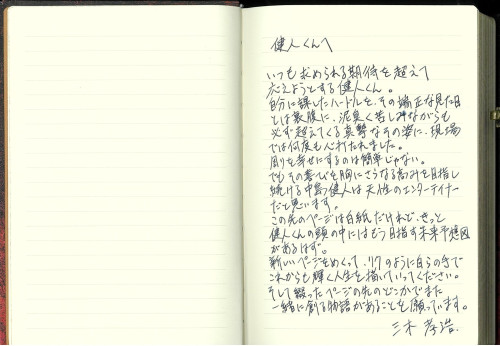 健人くんへ
いつも求められる期待を超えて
応えようとする健人くん。
自分に課したハードルを、その端正な見た目
とは裏腹に、泥臭く苦しみながらも
必ず超えてくる真摯なその姿に、現場
では何度も心打たれました。
周りを幸せにするのは簡単じゃない。
でもその喜びを胸にさらなる高みを目指し
続ける中島健人は天性のエンターテイナー
だと思います。
この先のページは白紙だけれど、きっと
健人くんの頭の中にはもう目指す未来予想図
があるはず。
新しいページをめくって、リクのように自らの手で
これからも輝く人生を描いていってください。
そして綴ったページの先のどこかでまた
一緒に創る物語があることを願っています。
三木孝浩